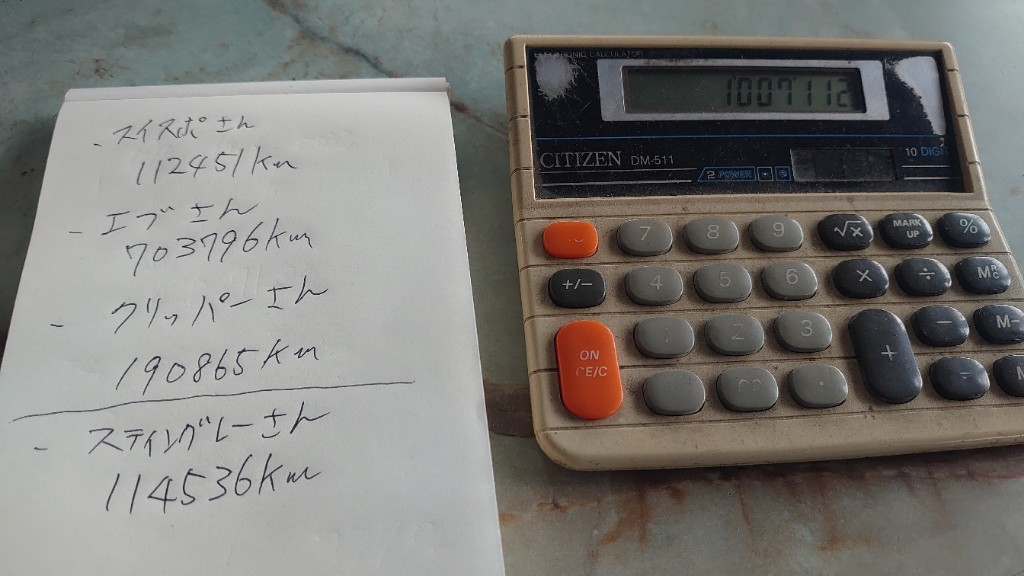 - スイスポさん
112451km
- エブさん
703796km
- クリッパーさん
190865km
- スティングレーさん
114536km
ELECTRONIC CALCULATOR
1'007'112
CITIZEN DM-511
10 DIGI
2 POWER
7 8 9 √x MARK UP %
+/- 4 5 6 × ÷
ON CE/C 1 2 3 + − M-
00 · =